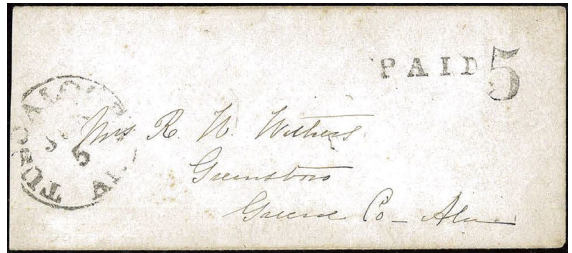 PAID 5
TUSCALOOSA
5
Mrs. R. W. Withers
Greensboro
Greene Co - Ala